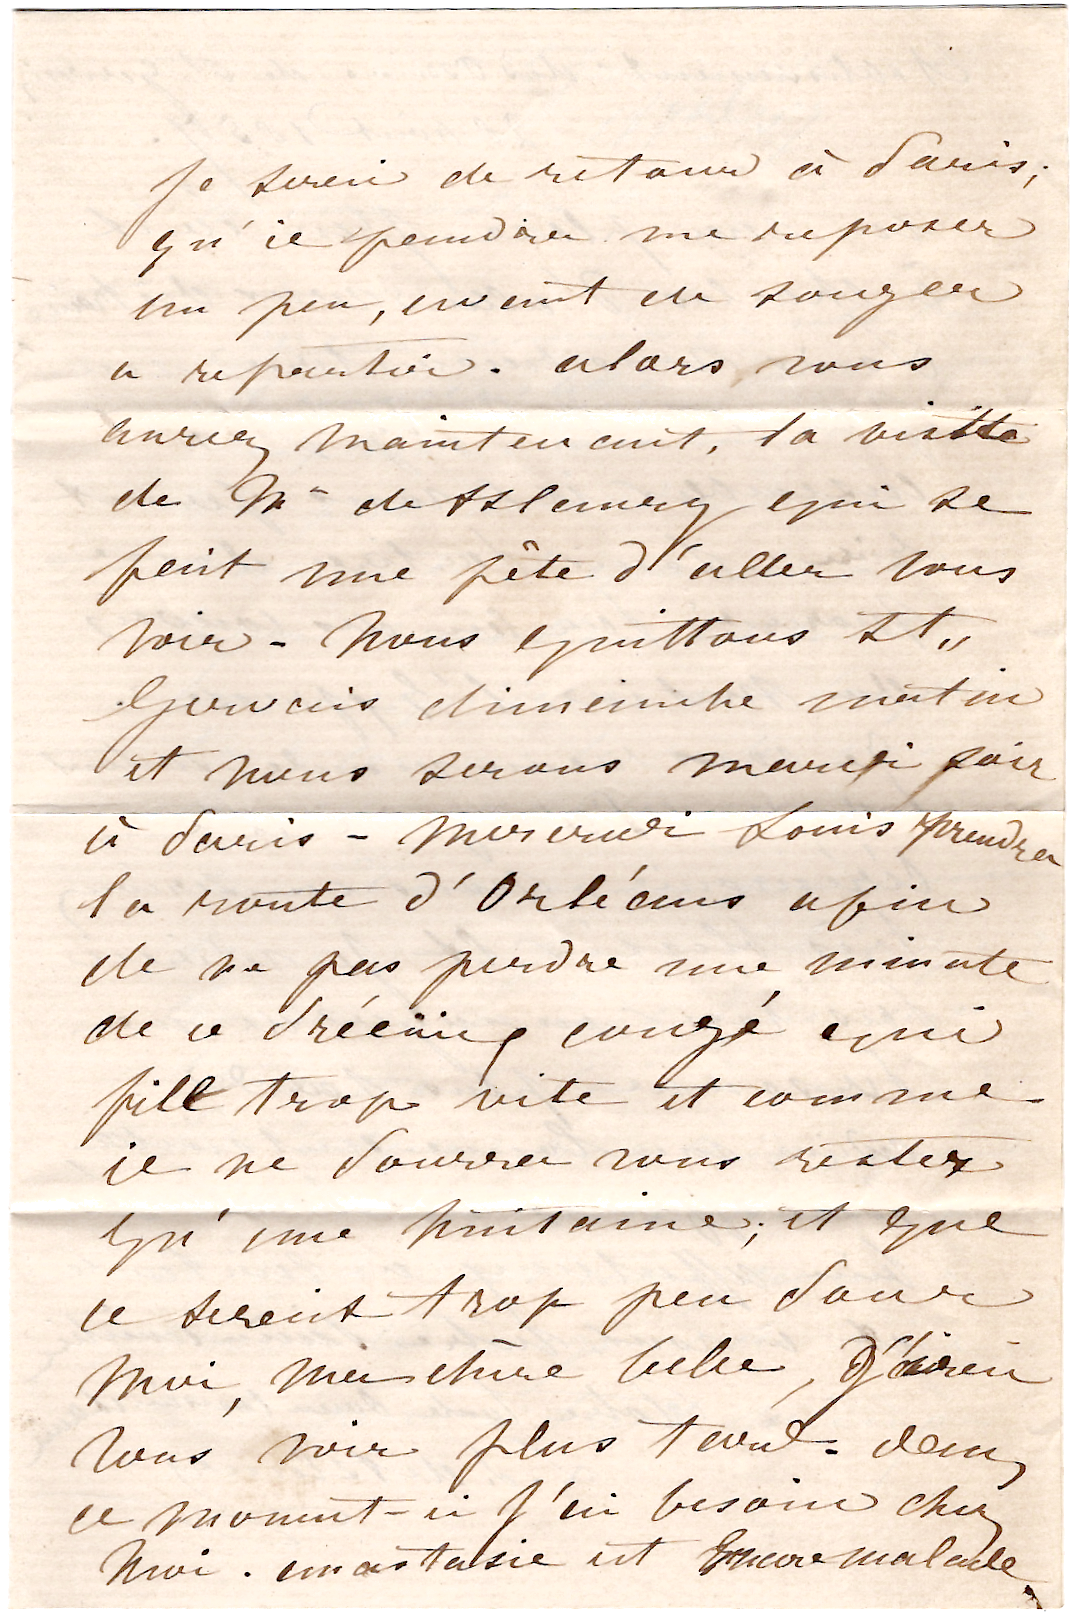 Je serai de retour à Paris;
qu'ie  me reposer
un peu, avant de songer
a repartir. alors vous
aurez maintenant, la visitte
de Mr de  qui se
fait une fête d'aller vous
voir - Nous quittons St"
Gervais dimanche matin
et nous serons mardi soir
à Paris - Mercredi Louis prendra
la route d'Orléans afin
de ne pas perdre une minute
de ce Précieux congé qui
fille trop vite et comme
ie ne Pourrai vous rester
qu'une huitaine; et que
ce serait trop peu Pour
Moi, ma chère bebe, J'irai
vous voir plus tard. dans
ce moment-ci J'ai besoin chez
Moi. anastasie est Encore malade